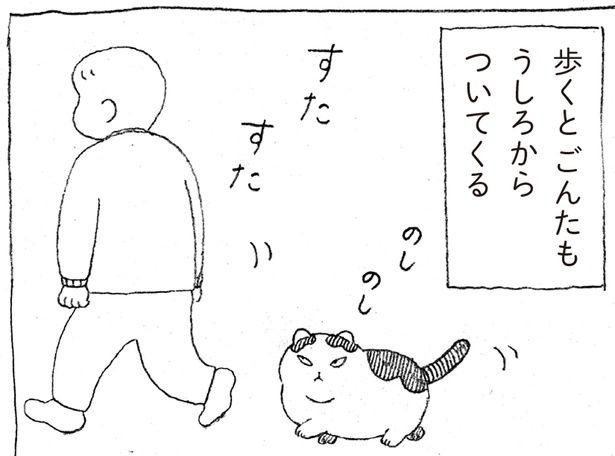 歩くとごんたも
うしろから
ついてくる
すた
すた
のし
のし